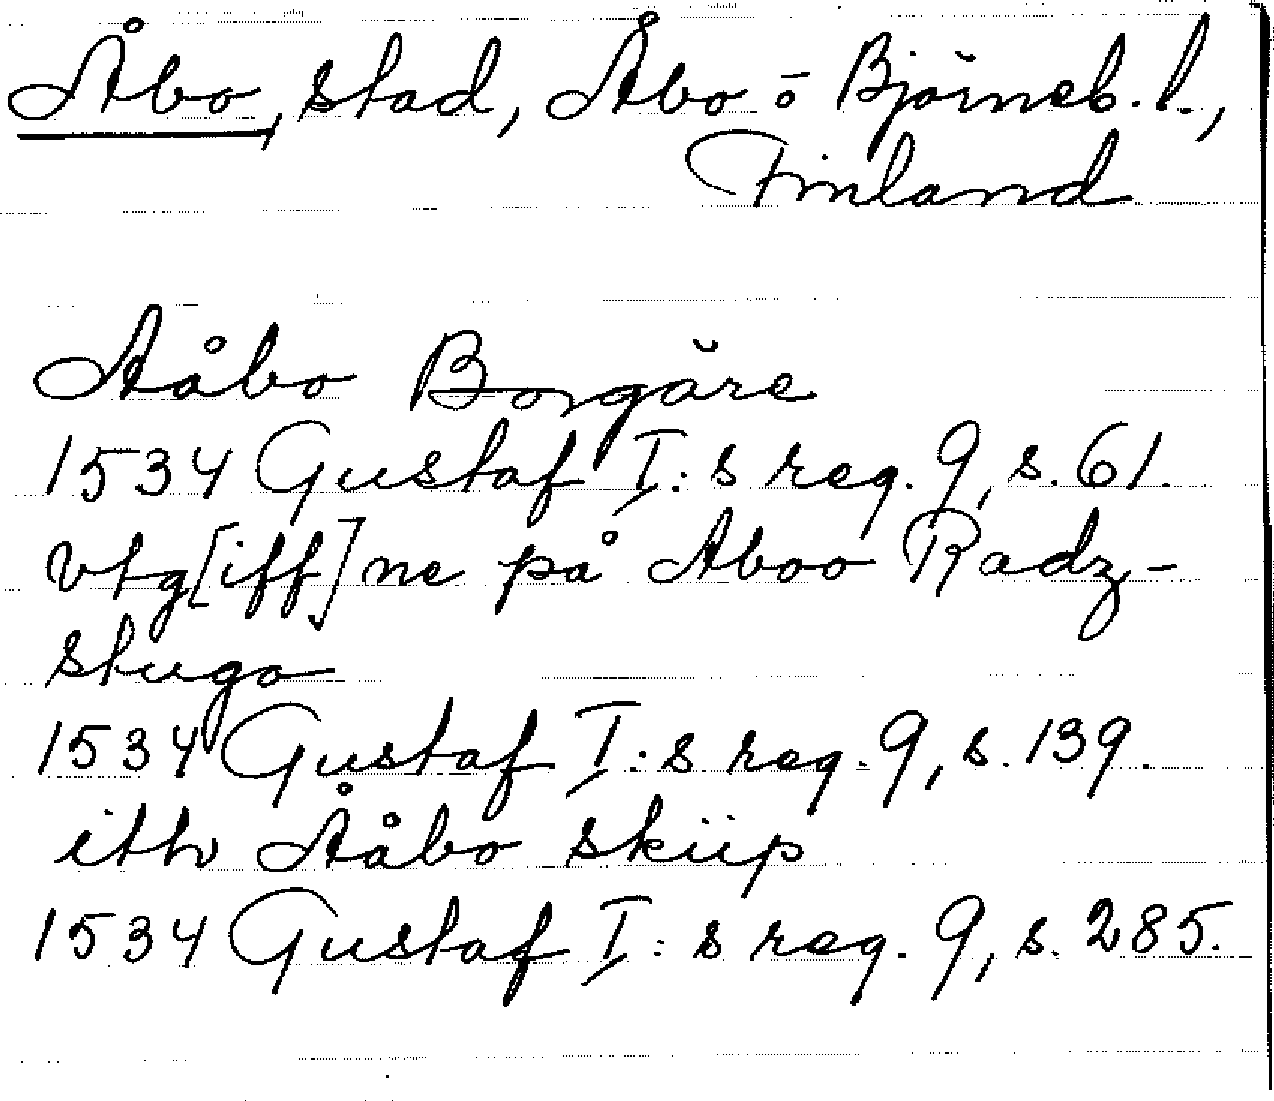 Åbo, stad, Åbo o Björneb. l.,
Finland
Aåbo Borgăre
1534 Gustaf I:s reg. 9, s. 61.
vtg[iff]ne på Aboo Radz-
stugo
1534 Gustaf I:s reg. 9, s. 139.
itth Ååbo skiip
1534 Gustaf I:s reg. 9, s. 285.